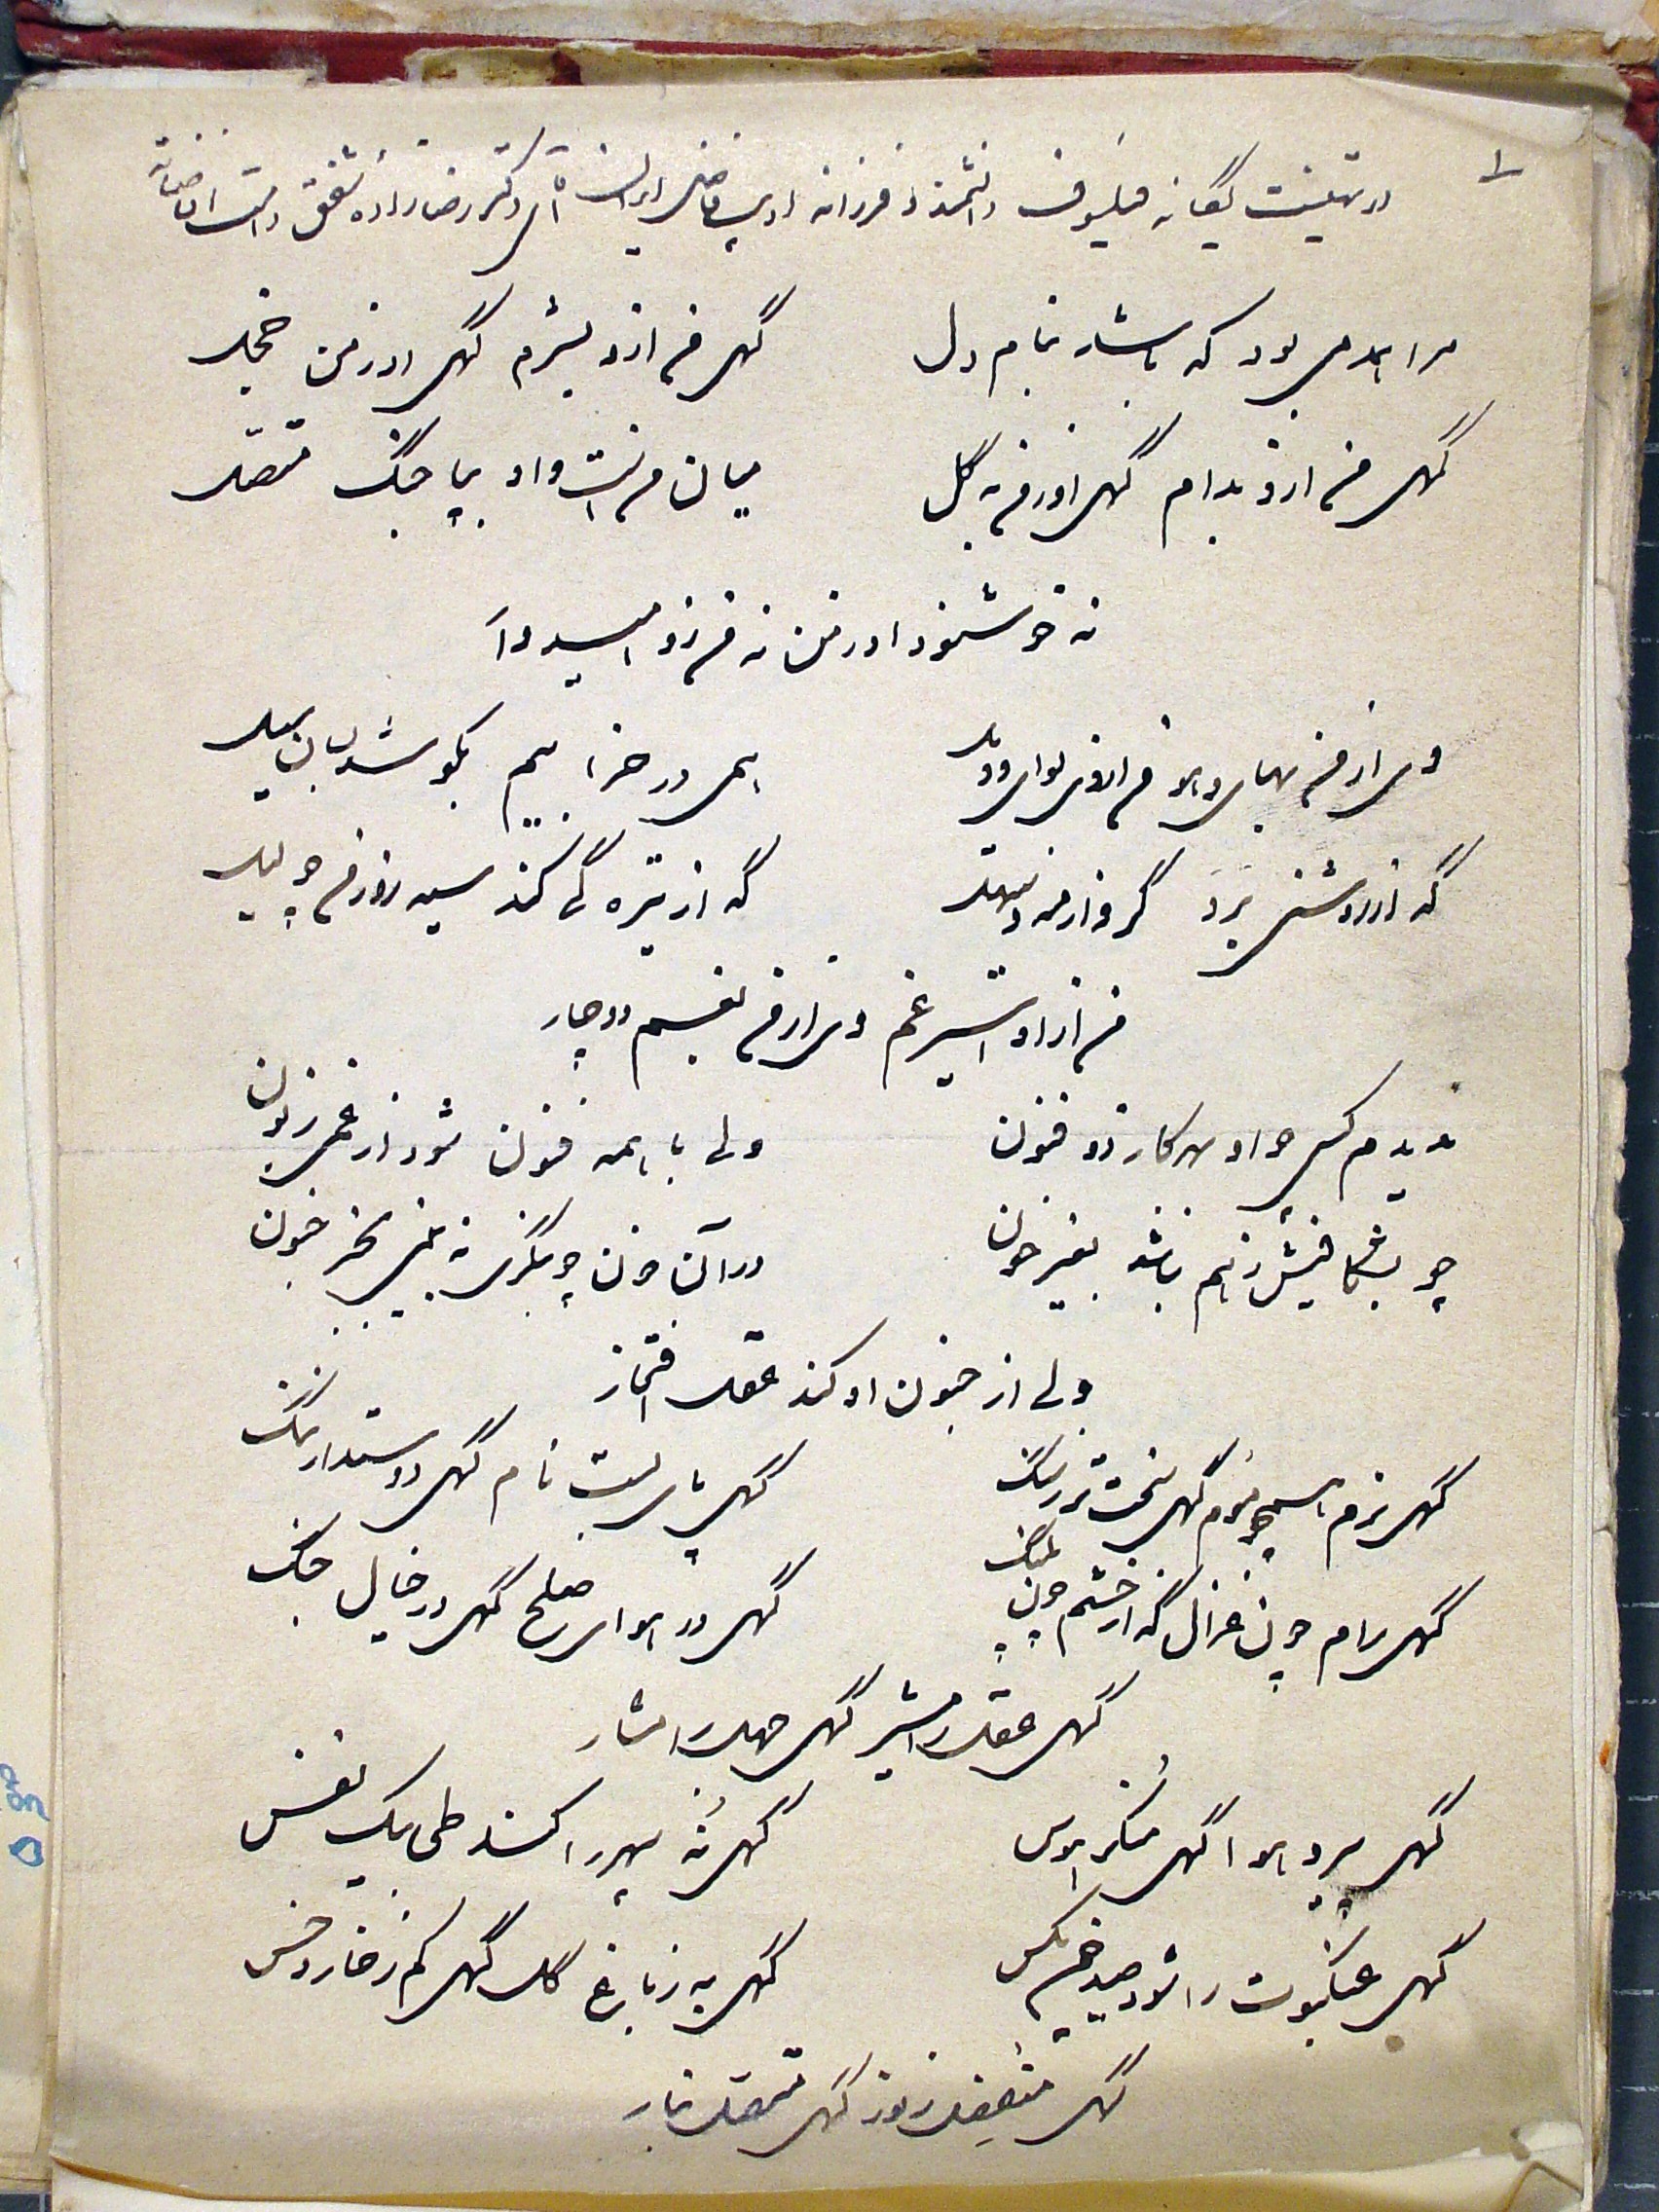 در تهنیت یگانه فیلسوف دانشمند و فرزانه ادیب فاضل ایران آقای دکتر رضازاده شفق دامت افاضاته
مرا همدمی بود که باشد بنام دل
گهی من ازو بشرم گهی او ز من خجل
گهی من ازو بدام گهی او ز من به گل
میان من است و او بپا جنگ متصل
نه خوشنود او ز من نه من زو امیدوار
وی از من بهای و هو من از وی بوای و ویل
همی در خرابیم بکوشد بسان سیل
گه از روشنی برد گرو از مه و سهیل
گه از تیره گی کند سیه روز من چو لیل
من از او اسیر غم وی از من بغم دوچار
ندیدم کسی چو او بهر کار ذو فنون
ولی با همه فنون شود از غمی زبون
چو بشکافیش ز هم نباشد بغیر خون
در آن خون چو بنگری نه بینی بجز جنون
ولی از جنون او کند عقل افتخار
گهی نرم همچو موم گهی سخت تر ز سنگ
گهی پای بست نام گهی دوستدار ننگ
گهی رام چون غزال گه از خشم چون پلنگ
گهی در هوای صلح گهی در خیال جنگ
گهی عقل را مشیر گهی جهل را مشار
گهی پیرو هوا گهی منکر هوس
گهی نه سپهر را کند طی بیک نفس
گهی عنکبوت را شود صید چون مگس
گهی به ز باغ گل گهی کم ز خار و خس
گهی منفصل ز نور گهی متصل بنار